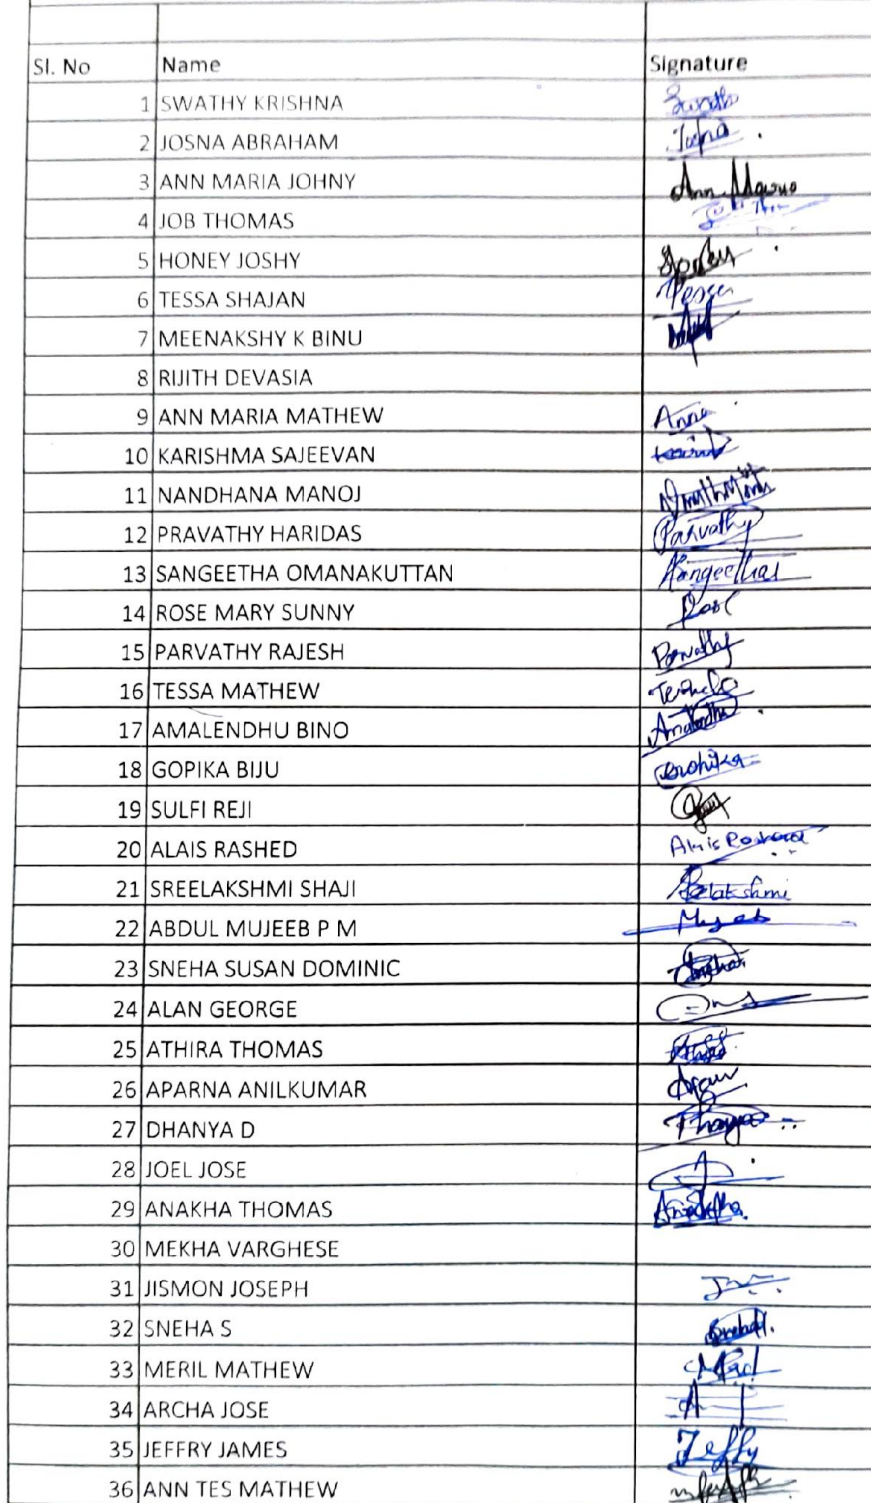 Sl. No Name Signature
1 SWATHY KRISHNA Swathy
2 JOSNA ABRAHAM Josna
3 ANN MARIA JOHNY Ann Maria
4 JOB THOMAS
5 HONEY JOSHY
6 TESSA SHAJAN Tessa
7 MEENAKSHY K BINU
8 RIJITH DEVASIA
9 ANN MARIA MATHEW Anna
10 KARISHMA SAJEEVAN
11 NANDHANA MANOJ
12 PRAVATHY HARIDAS Parvathy
13 SANGEETHA OMANAKUTTAN Sangeetha
14 ROSE MARY SUNNY Rose
15 PARVATHY RAJESH Parvathy
16 TESSA MATHEW
17 AMALENDHU BINO Amalendhu
18 GOPIKA BIJU Gopika
19 SULFI REJI
20 ALAIS RASHED Alais Rasheed
21 SREELAKSHMI SHAJI
22 ABDUL MUJEEB P M Mujeeb
23 SNEHA SUSAN DOMINIC Sneha
24 ALAN GEORGE
25 ATHIRA THOMAS
26 APARNA ANILKUMAR
27 DHANYA D
28 JOEL JOSE
29 ANAKHA THOMAS Anakha
30 MEKHA VARGHESE
31 JISMON JOSEPH
32 SNEHA S Sneha
33 MERIL MATHEW
34 ARCHA JOSE
35 JEFFRY JAMES Jeffy
36 ANN TES MATHEW